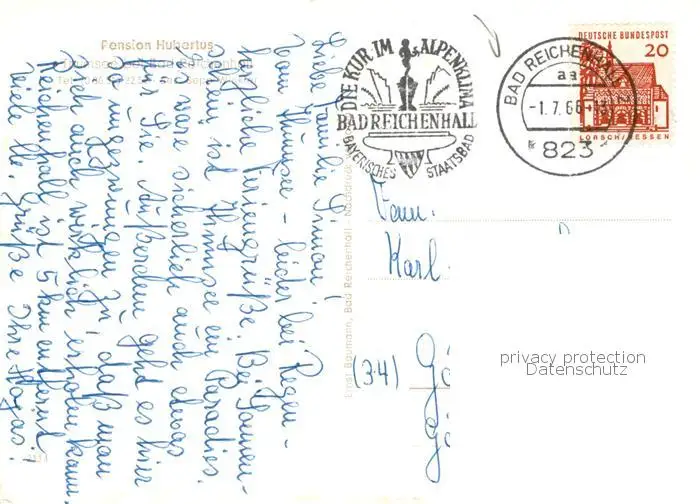 Pension Hubertus
Thumsee bei Bad Reichenhall
DIE KUR IM ALPENKLIMA
BAD REICHENHALL
BAYERISCHES STAATSBAD
BAD REICHENHALL
aa
-1.7.66
823
DEUTSCHE BUNDESPOST
20
LORSCH/HESSEN
Liebe Familie Simon!
Vom Thumsee - leider bei Regen -
herzliche Feriengrüße. Bei Sonnen-
schein ist Thumsee ein Paradies.
Es wäre sicherlich auch etwas
für Sie. Außerdem geht es hier
so ungezwungen zu, daß man
sich auch wirklich erholen kann.
Reichenhall ist 5 km entfernt.
Viele Grüße Ihre
Fam.
Karl
(34) Gö
Gö
Ernst Baumann, Bad Reichenhall
privacy protection
Datenschutz